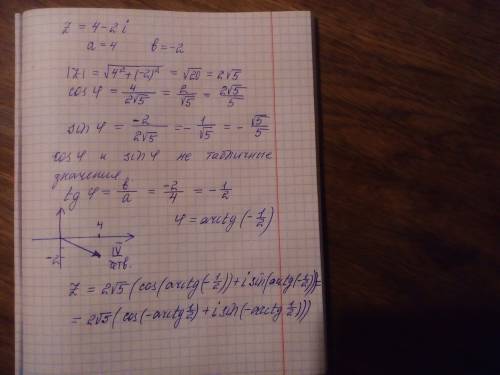 z = 4 - 2i
a = 4 в = -2
|z| = √(4² + (-2)²) = √20 = 2√5
cos φ = 4/(2√5) = 2/√5 = 2√5/5
sin φ = -2/(2√5) = -1/√5 = -√5/5
cos φ и sin φ не табличные
значения
tg φ = в/a = -2/4 = -1/2
φ = arctg(-1/2)
4
-2
IV
четв.
z = 2√5(cos(arctg(-1/2)) + i sin(arctg(-1/2))) =
= 2√5(cos(-arctg 1/2) + i sin(-arctg 1/2)))